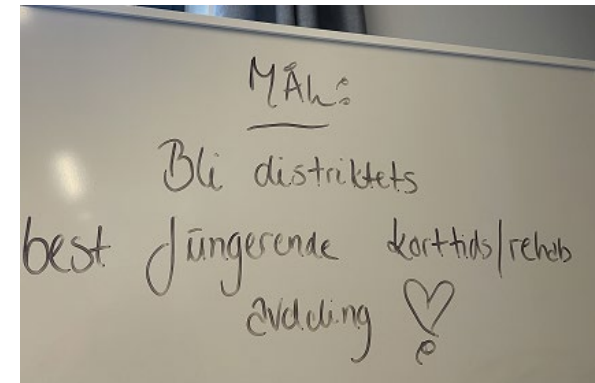 MÅL:
Bli distriktets
best füngerende korttids/rehab
avdeling